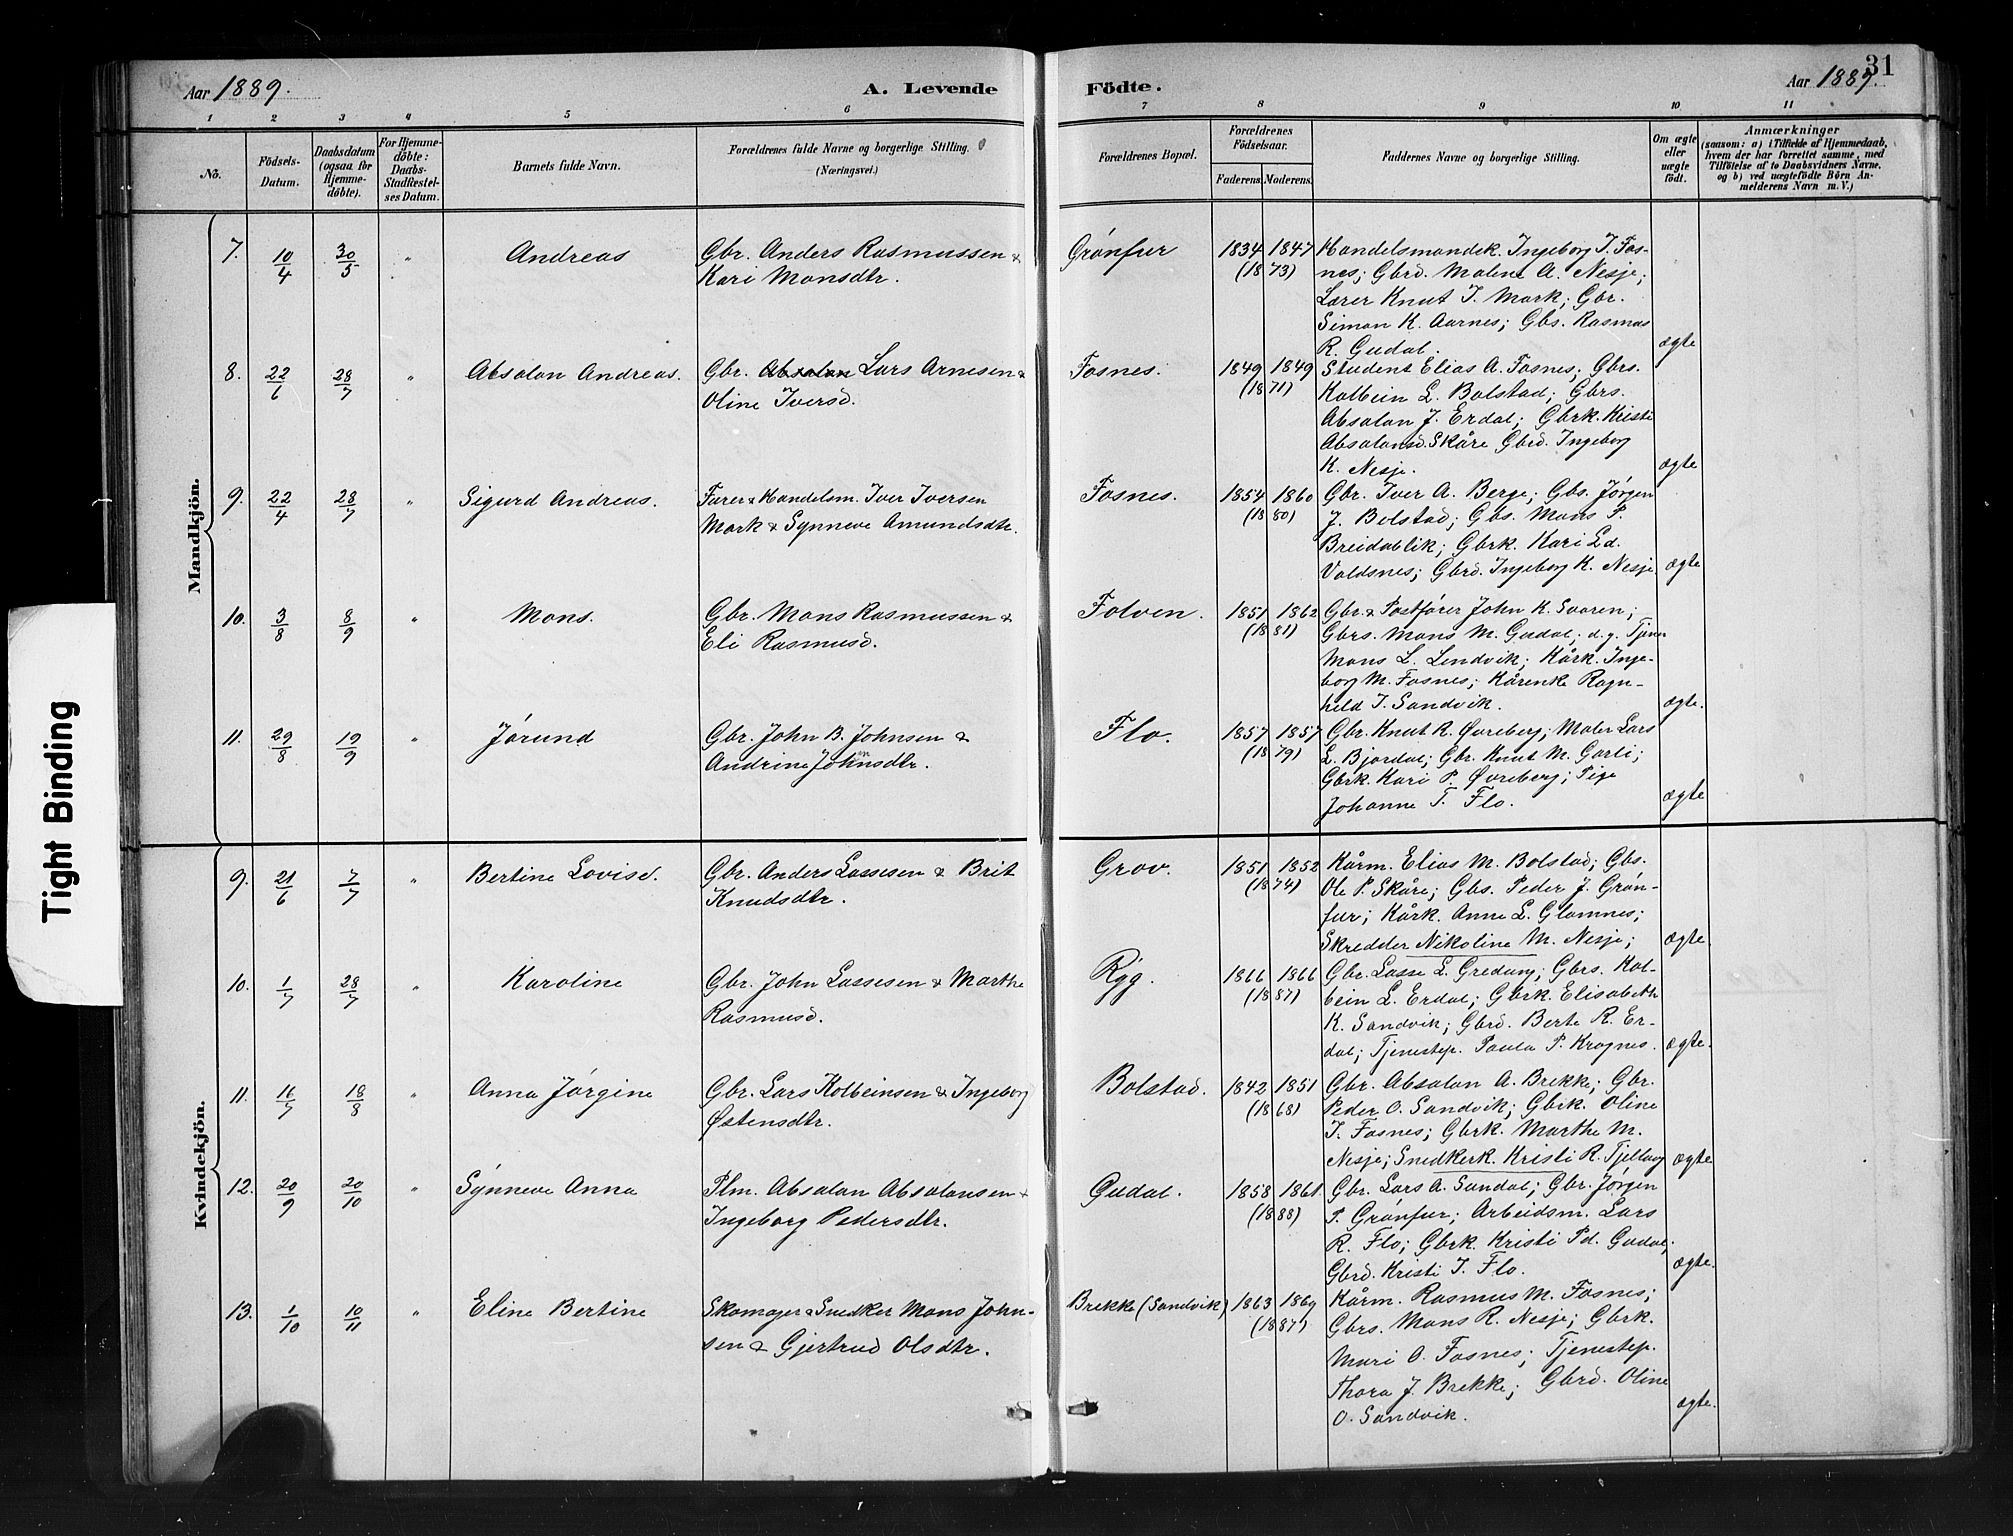 Tight Binding
Aar 1889.
A. Levende
Födte.
Aar 1889.
31
1 2 3 4 5 6 7 8 9 10 11
No.
Födsels-
Datum.
Daabsdatum
(ogsaa for
Hjemme-
döbte).
For Hjemme-
döbte:
Daabs-
Stadfæstel-
ses Datum.
Barnets fulde Navn.
Forældrenes fulde Navne og borgerlige Stilling.
(Næringsvei.)
Forældrenes Bopæl.
Forældrenes
Födselsaar.
Faderens. Moderens.
Faddernes Navne og borgerlige Stilling.
Om ægte
eller
uægte
födt.
Anmærkninger
(saasom: a) i Tilfælde af Hjemmedaab,
hvem der har forrettet samme, med
Tilföielse af to Daabsvidners Navne,
og b) ved uægtefödte Börn An-
melderens Navn m. V.)
Mandkjön.
7. 10/4 30/5 " Andreas Gbr. Anders Rasmussen &
Kari Monsdtr.
Grønfur 1834 1847
(1873)
Handelsmandsk. Ingeborg I. Fos-
nes; Gbrd. Malene A. Nesje;
Lærer Knut I. Mork; Gbr.
Simon K. Aarnes; Gbs. Rasmus
R. Gudal. ægte
8. 22/6 28/7 " Absalon Andreas. Gbr. Absalon Lars Arnesen &
Oline Iversd.
Fosnes. 1849 1849
(1871)
Student Elias A. Fosnes; Gbrs.
Kolbein L. Bolstad; Gbrs.
Absalon J. Erdal; Gbrk. Kristi
Absalonsd. Skåre Gbrd. Ingeborg
K. Nesje. ægte
9. 22/4 28/7 " Sigurd Andreas. Farer & Handelsm. Iver Iversen
Mork & Synneve Amundsdtr.
Fosnes. 1854 1860
(1880)
Gbr. Iver A. Berge; Gbs. Jørgen
J. Bolstad; Gbs. Mons P.
Breidablik; Gbrk. Kari Ld.
Valdsnes; Gbrd. Ingeborg K. Nesje. ægte
10. 3/8 8/9 " Mons. Gbr. Mons Rasmussen &
Eli Rasmusd.
Folven. 1851 1862
(1881)
Gbr. & Postfører John K. Svoren;
Gbrs. Mons M. Gudal; d.g. Tjener
Mons L. Lendvik; Kårk. Inge-
borg M. Fosnes; Kårenke Ragn-
hild I. Sandvik. ægte.
11. 29/8 19/9 " Jørund Gbr. John B. Johnsen &
Andrine Johnsdtr.
Flo. 1857 1857
(1879)
Gbr. Knut R. Øvreberg; Maler Lars
L. Bjordal; Gbr. Knut M. Garli;
Gbrk. Kari P. Øvreberg; Pige
Johanne T. Flo. ægte
Kvindekjön.
9. 21/6 7/7 " Bertine Lovise. Gbr. Anders Lassesen & Brit
Knudsdtr.
Grov. 1851 1852
(1874)
Kårm. Elias M. Bolstad; Gbs.
Ole P. Skåre; Gbs. Peder J. Grøn-
fur; Kårk. Anne L. Glomnes;
Skredder Nikoline M. Nesje; ægte.
10. 1/7 28/7 " Karoline Gbr. John Lassesen & Marthe
Rasmusd.
Ryg. 1866 1866
(1887)
Gbr. Lasse L. Gredung; Gbrs. Kol-
bein L. Erdal; Gbrk. Elisabeth
K. Sandvik; Gbrd. Berte R. Er-
dal; Tjenestep. Paula P. Krognes. ægte.
11. 16/7 18/8 " Anna Jørgine Gbr. Lars Kolbeinsen & Ingeborg
Østensdtr.
Bolstad. 1842 1851
(1868)
Gbr. Absalon A. Brekke; Gbr.
Peder O. Sandvik; Gbrk. Oline
I. Fosnes; Gbrk. Marthe M.
Nesje; Snedkerk. Kristi R. Tjellaug ægte
12. 20/9 20/10 " Synneve Anna Plm. Absalon Absalonsen &
Ingeborg Pedersdtr.
Gudal. 1858 1861.
(1888)
Gbr. Lars A. Sandal; Gbr. Jørgen
P. Grønfur; Arbeidsm. Lars
R. Flo; Gbrk. Kristi Pd. Gudal;
Gbrd. Kristi I. Flo. ægte.
13. 1/10 10/11 " Eline Bertine Skomager & Snedker Mons John-
sen & Gjertrud Olsdtr.
Brekke (Sandvik) 1863 1869
(1887)
Kårm. Rasmus M. Fosnes;
Gbrs. Mons R. Nesje; Gbrk.
Mari O. Fosnes; Tjenestep.
Thora J. Brekke; Gbrd. Oline
O. Sandvik. ægte.